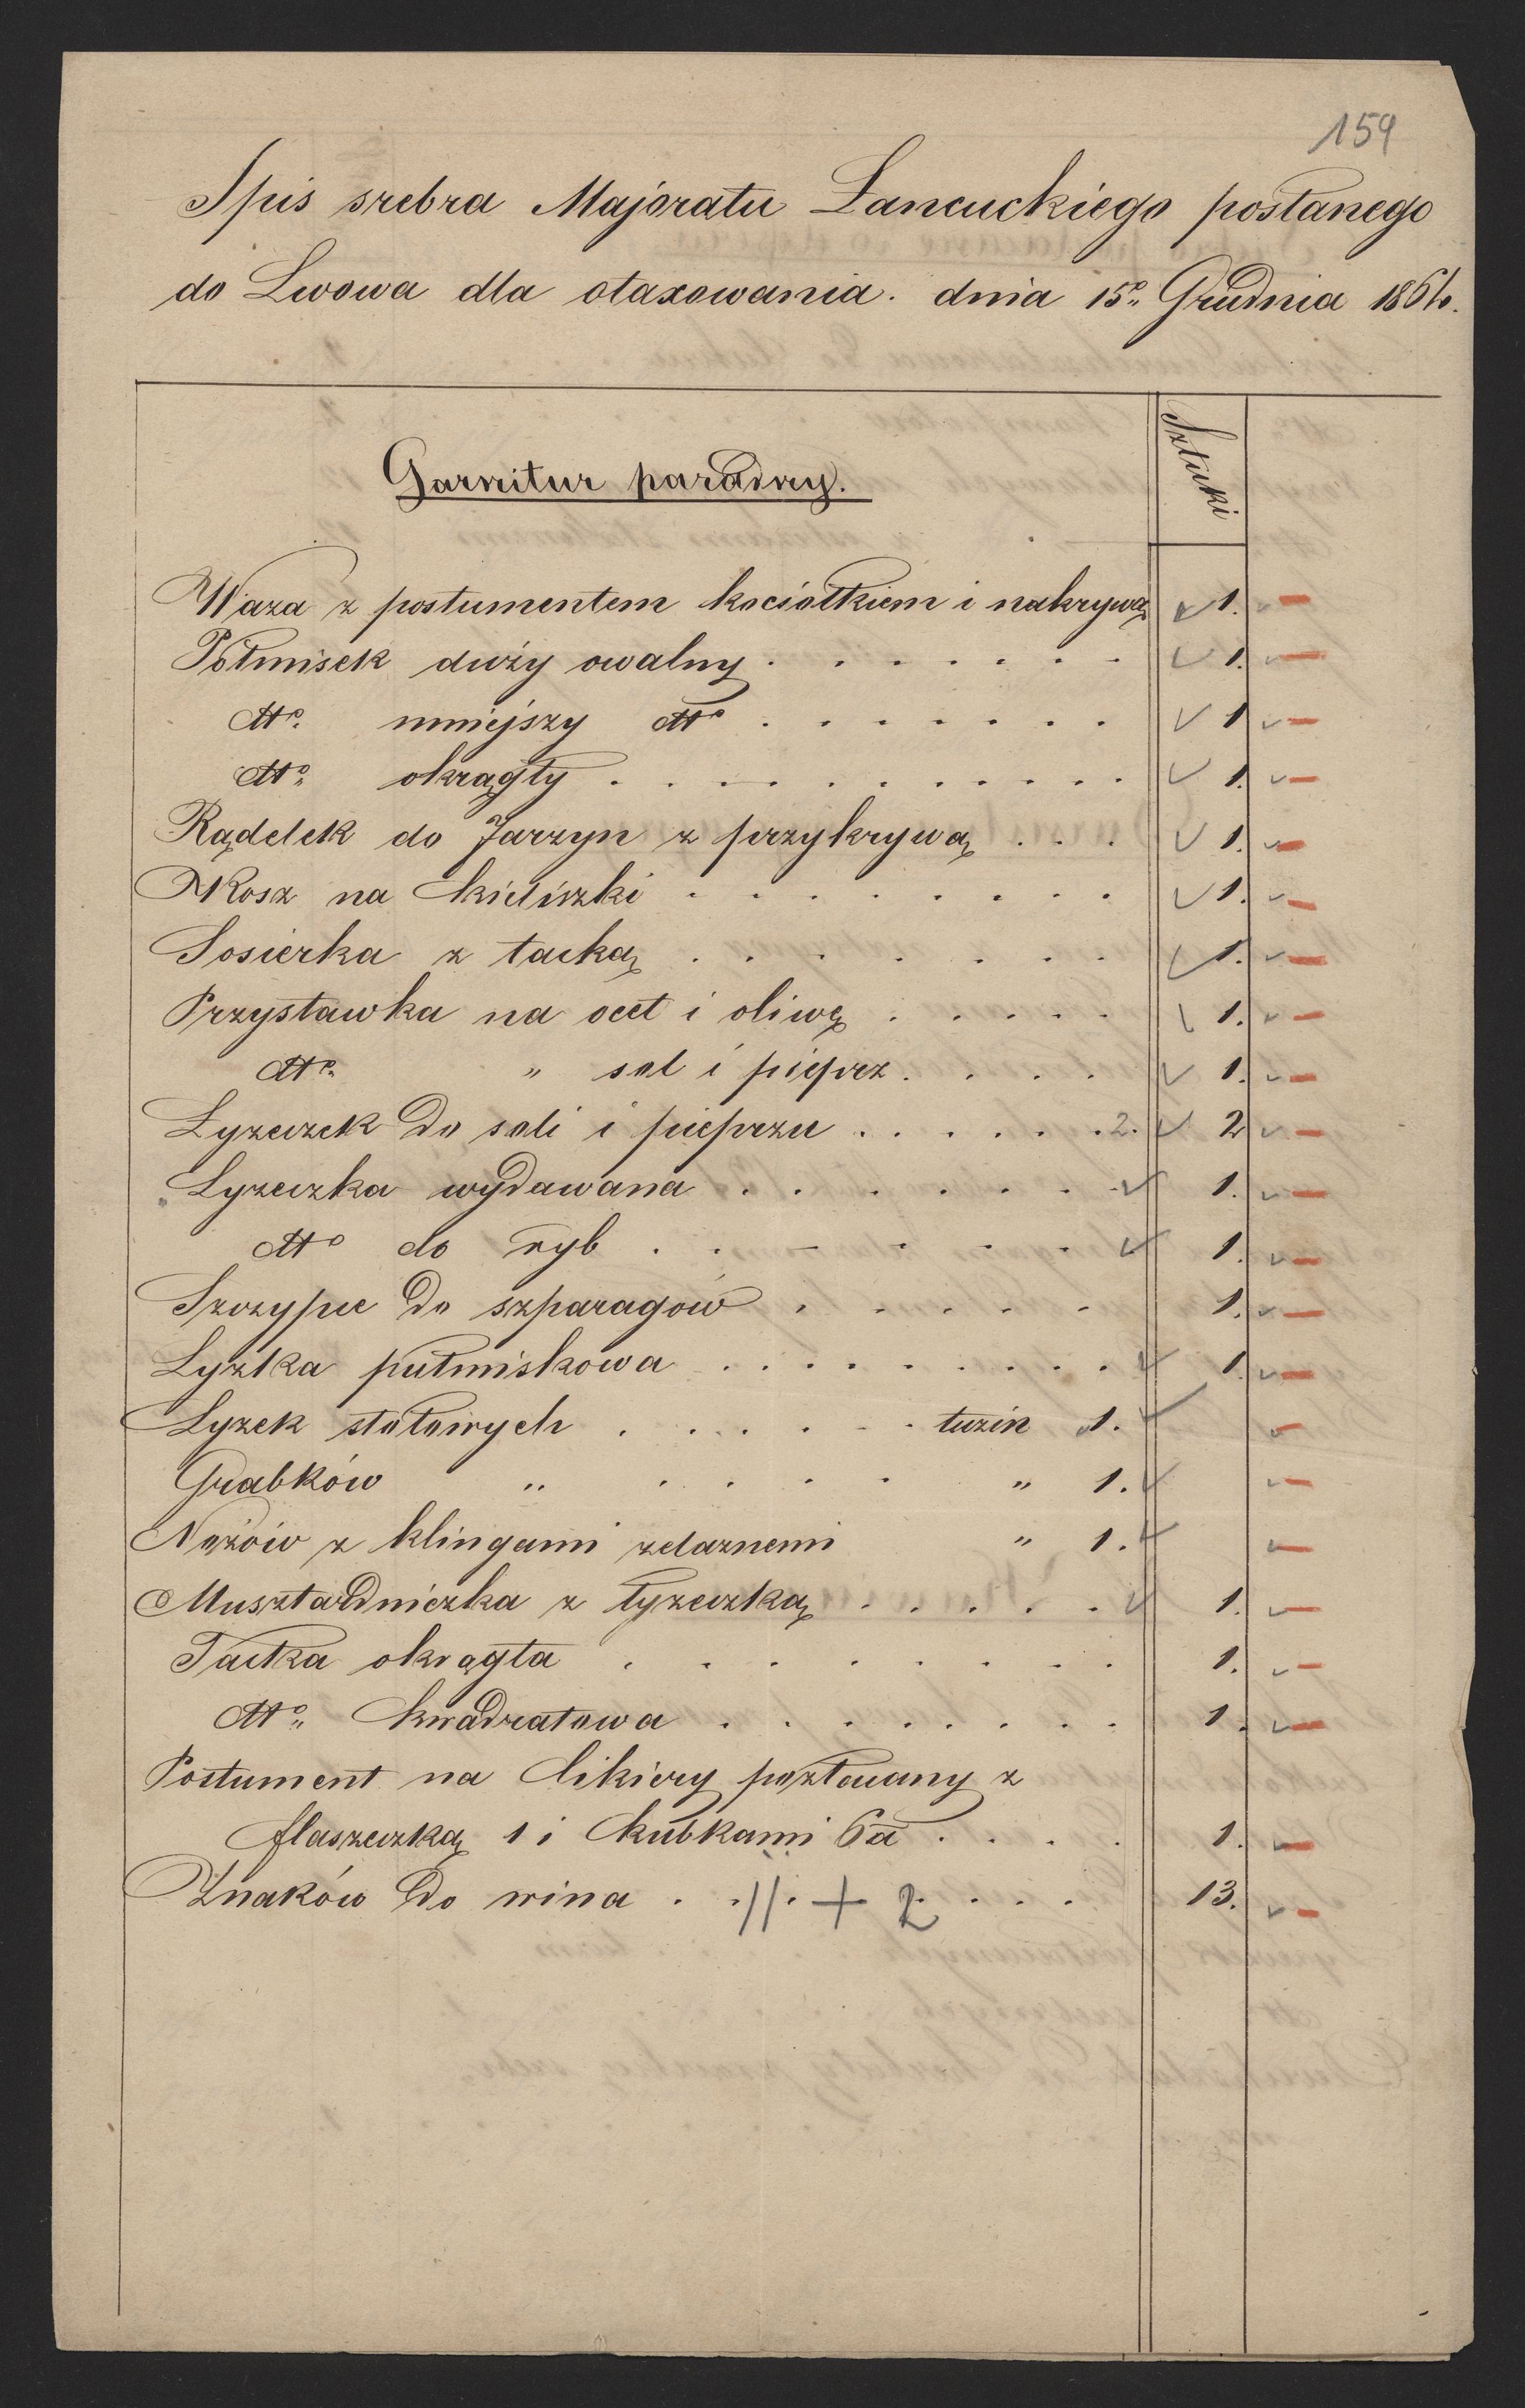 159
Spis srebra Majoratu Łancuckiego posłanego
do Lwowa dla otaxowania. dnia 15º Grudnia 1864.
Sztuki
Garnitur paradny.
Waza z postumentem kociołkiem i nakrywą 1.
Półmisek duży owalny . . . . . . . 1.
dttº mniejszy dttº . . . . . . . 1
dttº okrągły . . . . . . . . . . 1.
Rądelek do Jarzyn z przykrywą . . . 1.
Kosz na kieliszki . . . . . . . . 1.
Sosierka z tacką . . . . . . . 1.
Przystawka na ocet i oliwę . . . . . 1.
dttº " sol i pieprz . . . . 1.
Łyzeczek do soli i pieprzu . . . . . . . 2. 2
Łyzeczka wydawana . . . . . . . 1.
dttº do ryb . . . . . . . 1.
Szczypce do szparagów . . . . . 1.
Łyzka putmiskowa . . . . . . . . . 1.
Łyzek stołowych . . . . . . tuzin 1.
Grabków " . . . . " 1.
Nożów z klingami zelaznemi " 1.
Musztardniczka z łyzeczką . . . . . 1.
Tacka okrągła . . . . . . . . 1.
dttº kwadratowa . . . . . . . . 1.
Postument na likiery pozłacany z
flaszeczką 1 i kubkami 6a . . . . 1.
Znaków do wina . . 11 . + 2 . . . 13.